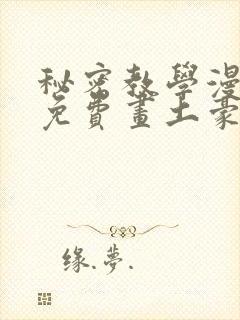 秘密教學漫
免費畫土豪
缘.夢.